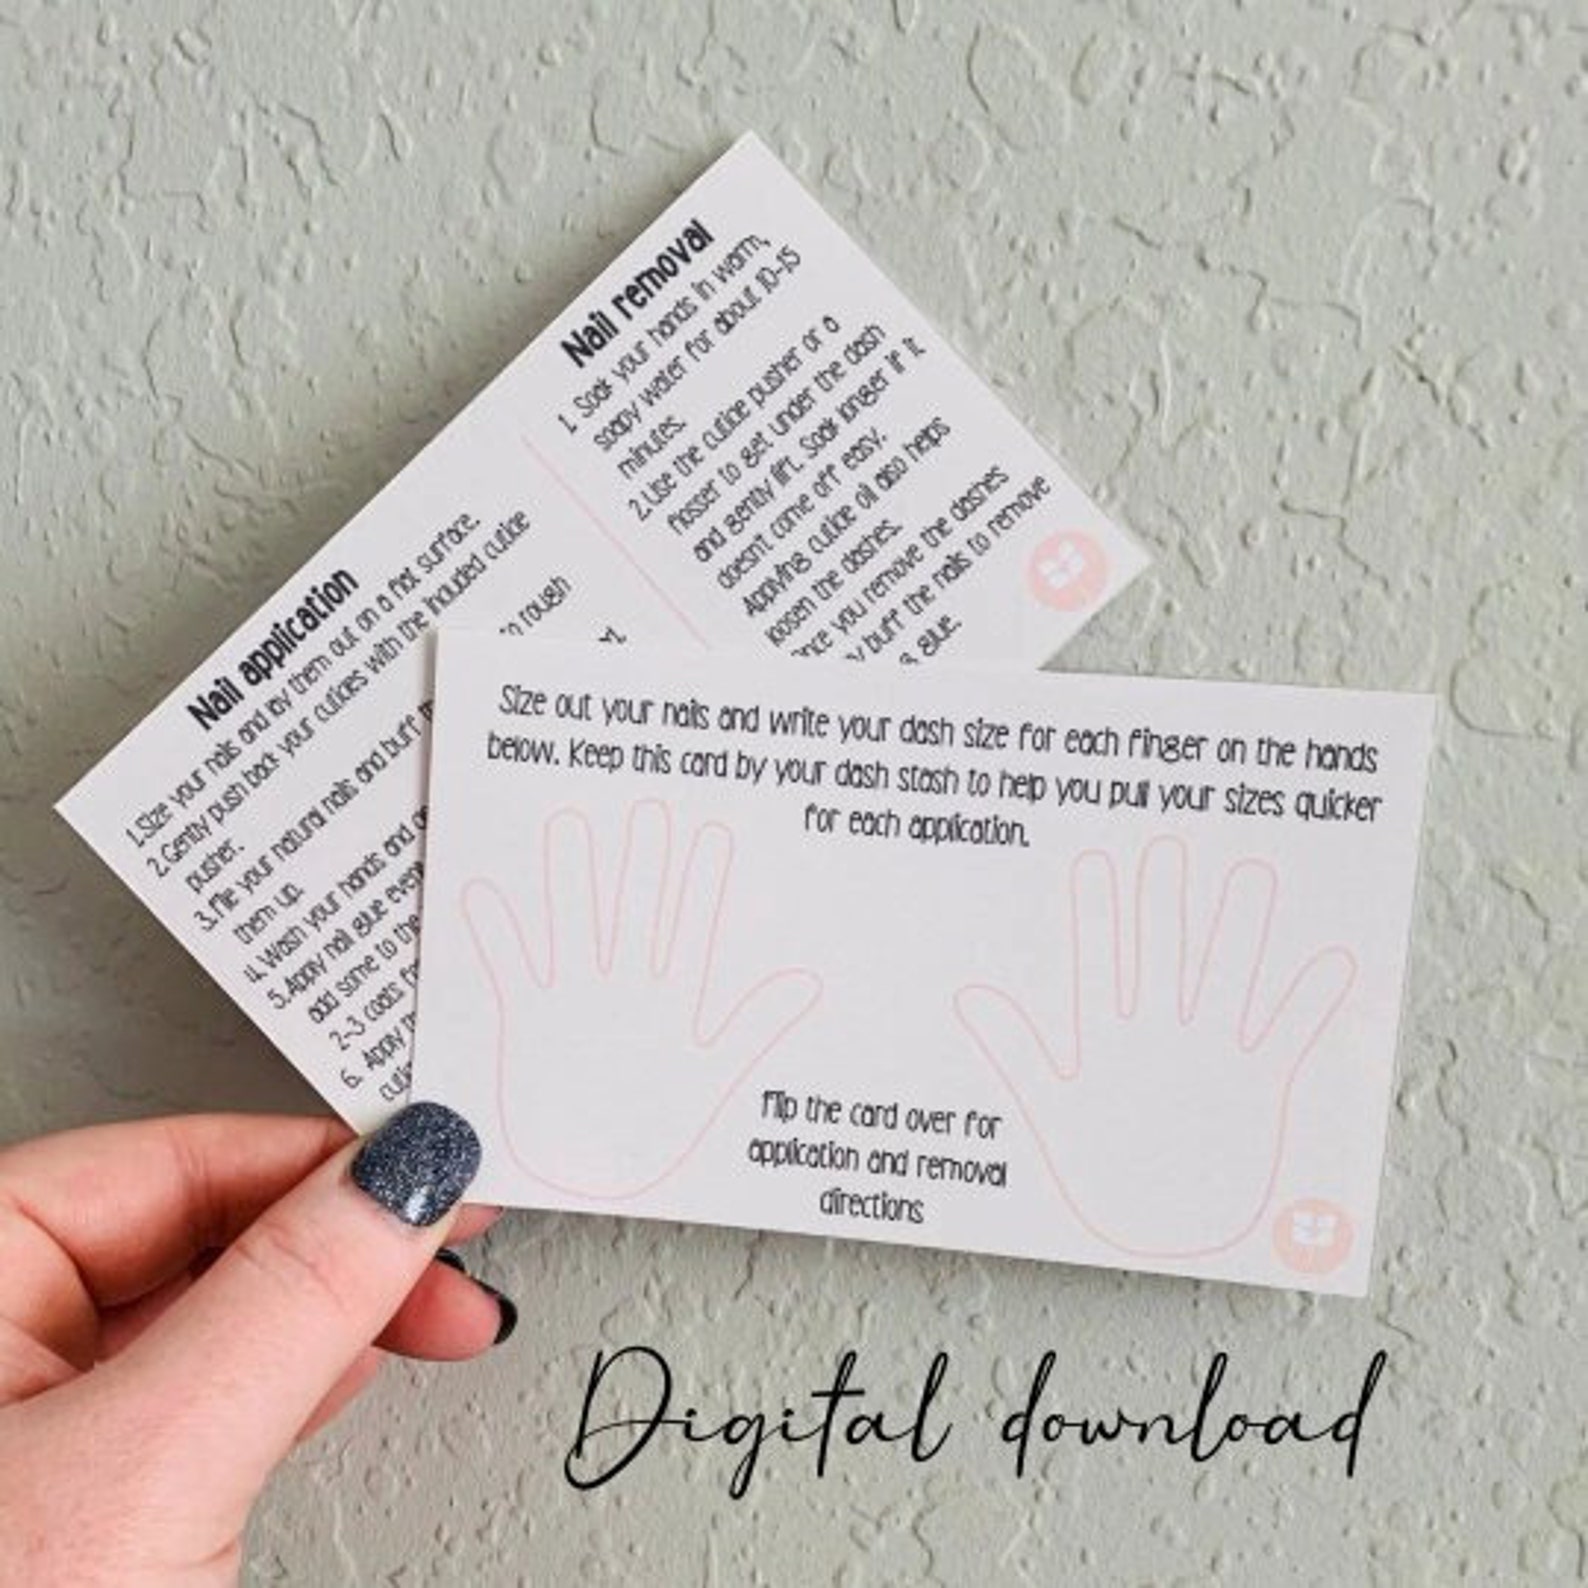 Nail removal
1. Soak your hands in warm,
soapy water for about 10-15
minutes.
2. Use the cuticle pusher or a
flosser to get under the dash
and gently lift. Soak longer if it
doesn't come off easy.
Applying cuticle oil also helps
loosen the dashes.
you remove the dashes
buff the nails to remove
glue.
Nail application
1. Size your nails and lay them out on a flat surface.
2. Gently push back your cuticles with the included cuticle
pusher.
3. File your natural nails and buff
rough
them up.
4. Wash your hands and
5. Apply nail glue
add some to the
2-3 coats
6. Apply
Size out your nails and write your dash size for each finger on the hands
below. Keep this card by your dash stash to help you pull your sizes quicker
for each application.
Flip the card over for
application and removal
directions
Digital download